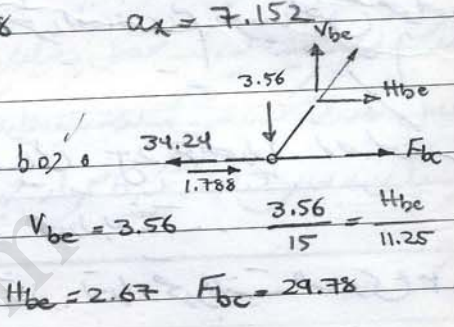 aₓ = 7.152
V_be
3.56
H_be
34.24
F_bc
1.788
V_be = 3.56
3.56 / 15 = H_be / 11.25
H_be = 2.67 F_bc = 29.78